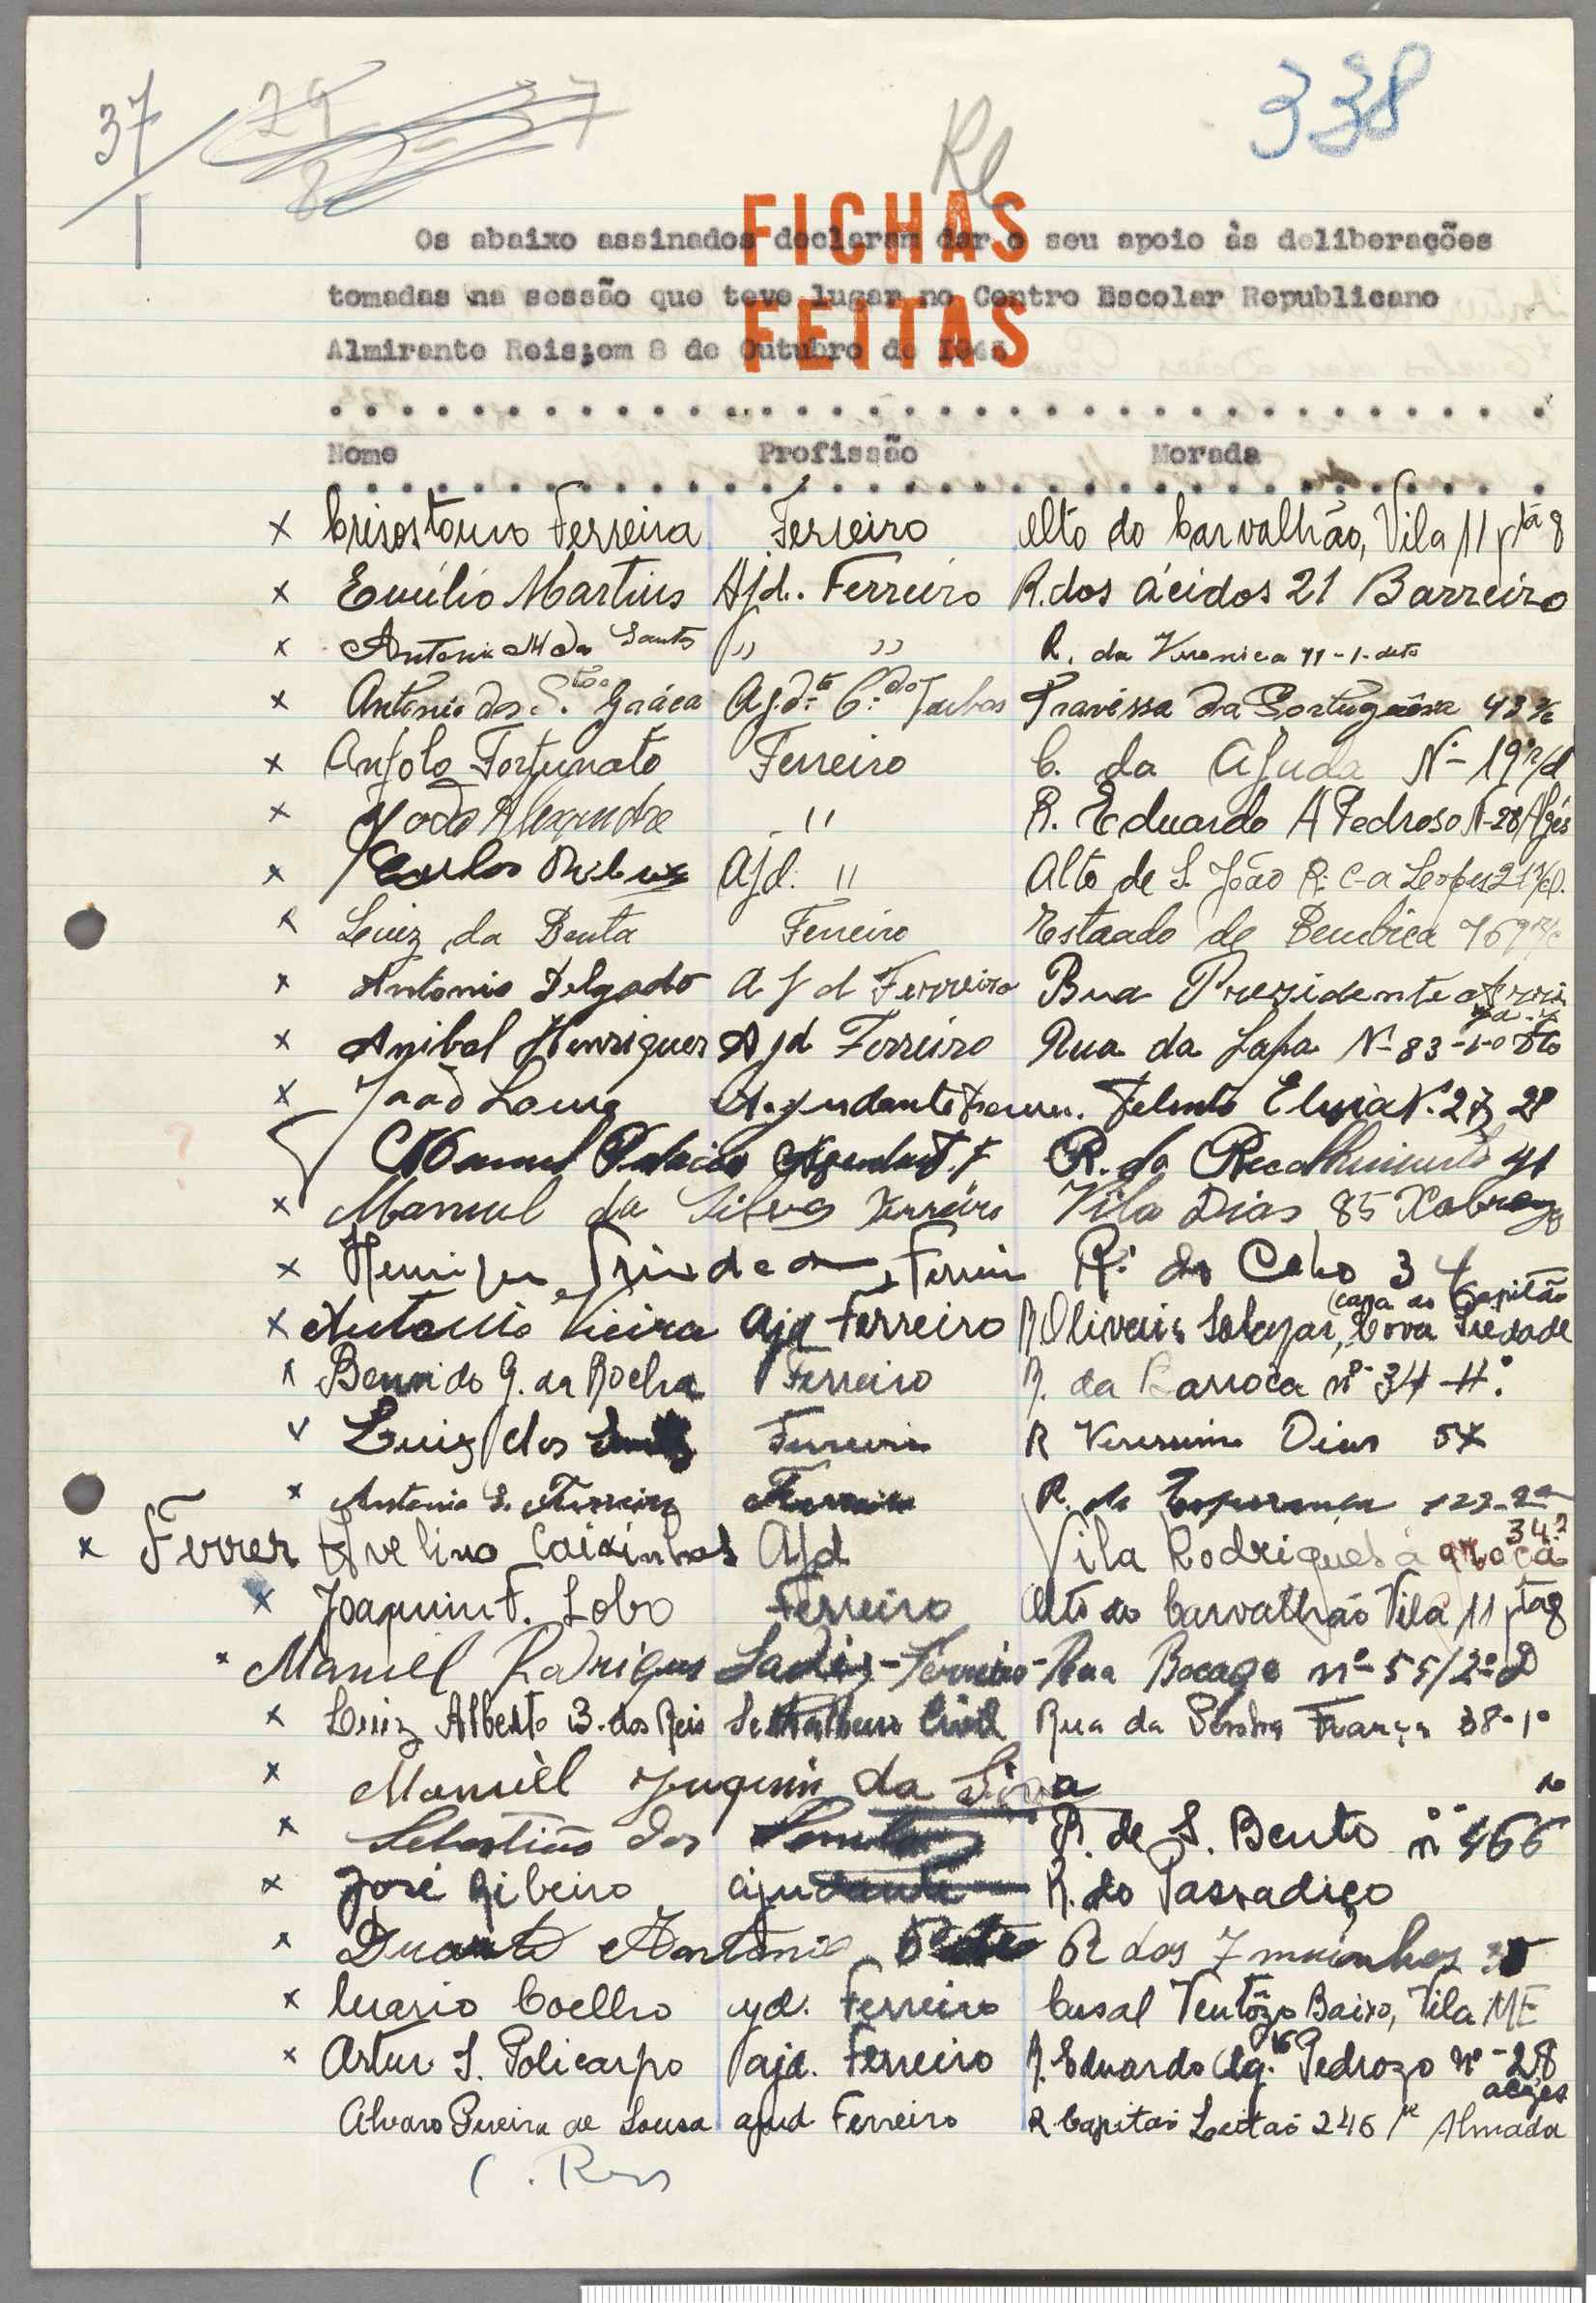 37
1
338
Re
FICHAS
FEITAS
Os abaixo assinados declaram dar o seu apoio às deliberações
tomadas na sessão que teve lugar no Centro Escolar Republicano
Almirante Reis, em 8 de Outubro de 1945
Nome Profissão Morada
x Crisostomo Ferreira Ferreiro Alto do Carvalhão, Vila 11 pta 8
x Emilio Martins Ajd. Ferreiro R. dos Ácidos 21 Barreiro
x Antonio M dos Santos " " R. da Veronica 11-1-dto
x Antonio dos S.tos Graça Ajd.te C.dor Tubos Travessa da Portuguêsa 43
x Anjolo Fortunato Ferreiro C. da Ajuda Nº 19 r/d
x João Alexandre " R. Eduardo A Pedroso N-28 Algés
x Carlos Ajd. " Alto de S. João R. Lopes 21
x Luiz da Benta Ferreiro Estrada de Bemfica 769
x Antonio Delgado Ajd Ferreiro Rua Prezidente Arriaga
x Anibal Henriques Ajd Ferreiro Rua da Lapa Nº 83-1-º Dto
x João Ajudante Ferr. Felinto Elisio N. 27 2º
Manuel Ajudant. F R. do Recolhimento 41
x Manuel da Silva Ferreiro Vila Dias 85 Xabregas
x Henrique Trindade Ferrei R. do Cabo 34
x Antonio Vieira Ajd Ferreiro R Oliveira Salazar, (casa do Capitão Cova Piedade
x Bernrdo G. da Rocha Ferreiro R. da Barroca nº 34-4º
v Luiz dos Ferreiro R Veressimo Dias 54
x Antonio S. Ferreira Ferreiro R. da Esperança 122-2º
x Ferrer Avelino Caixinhas Ajd Vila Rodrigues á graça 34
x Joaquim F. Lobo Ferreiro Alto do Carvalhão Vila 11 pta 8
x Manuel Rodrigues Ferreiro Rua Bocage nº 55/2º D
x Luiz Alberto B. dos Reis Serralheiro Civil Rua da Penha França 38-1º
x Manuel Juquim da Silva
x Sebastião dos Santos R. de S. Bento nº 466
x José Ribeiro ajudante R. do Passadiço
x Duarte Antonio R dos 7 moinhos
x Mario Coelho ajd. Ferreiro Casal Ventôzo Baixo, Vila ME
x Artur S. Policarpo ajd. Ferreiro R. Eduardo Ag. Pedrozo nº-28 algés
Alvaro Pereira de Sousa ajud Ferreiro R Capitaõ Leitaõ 246 Almada